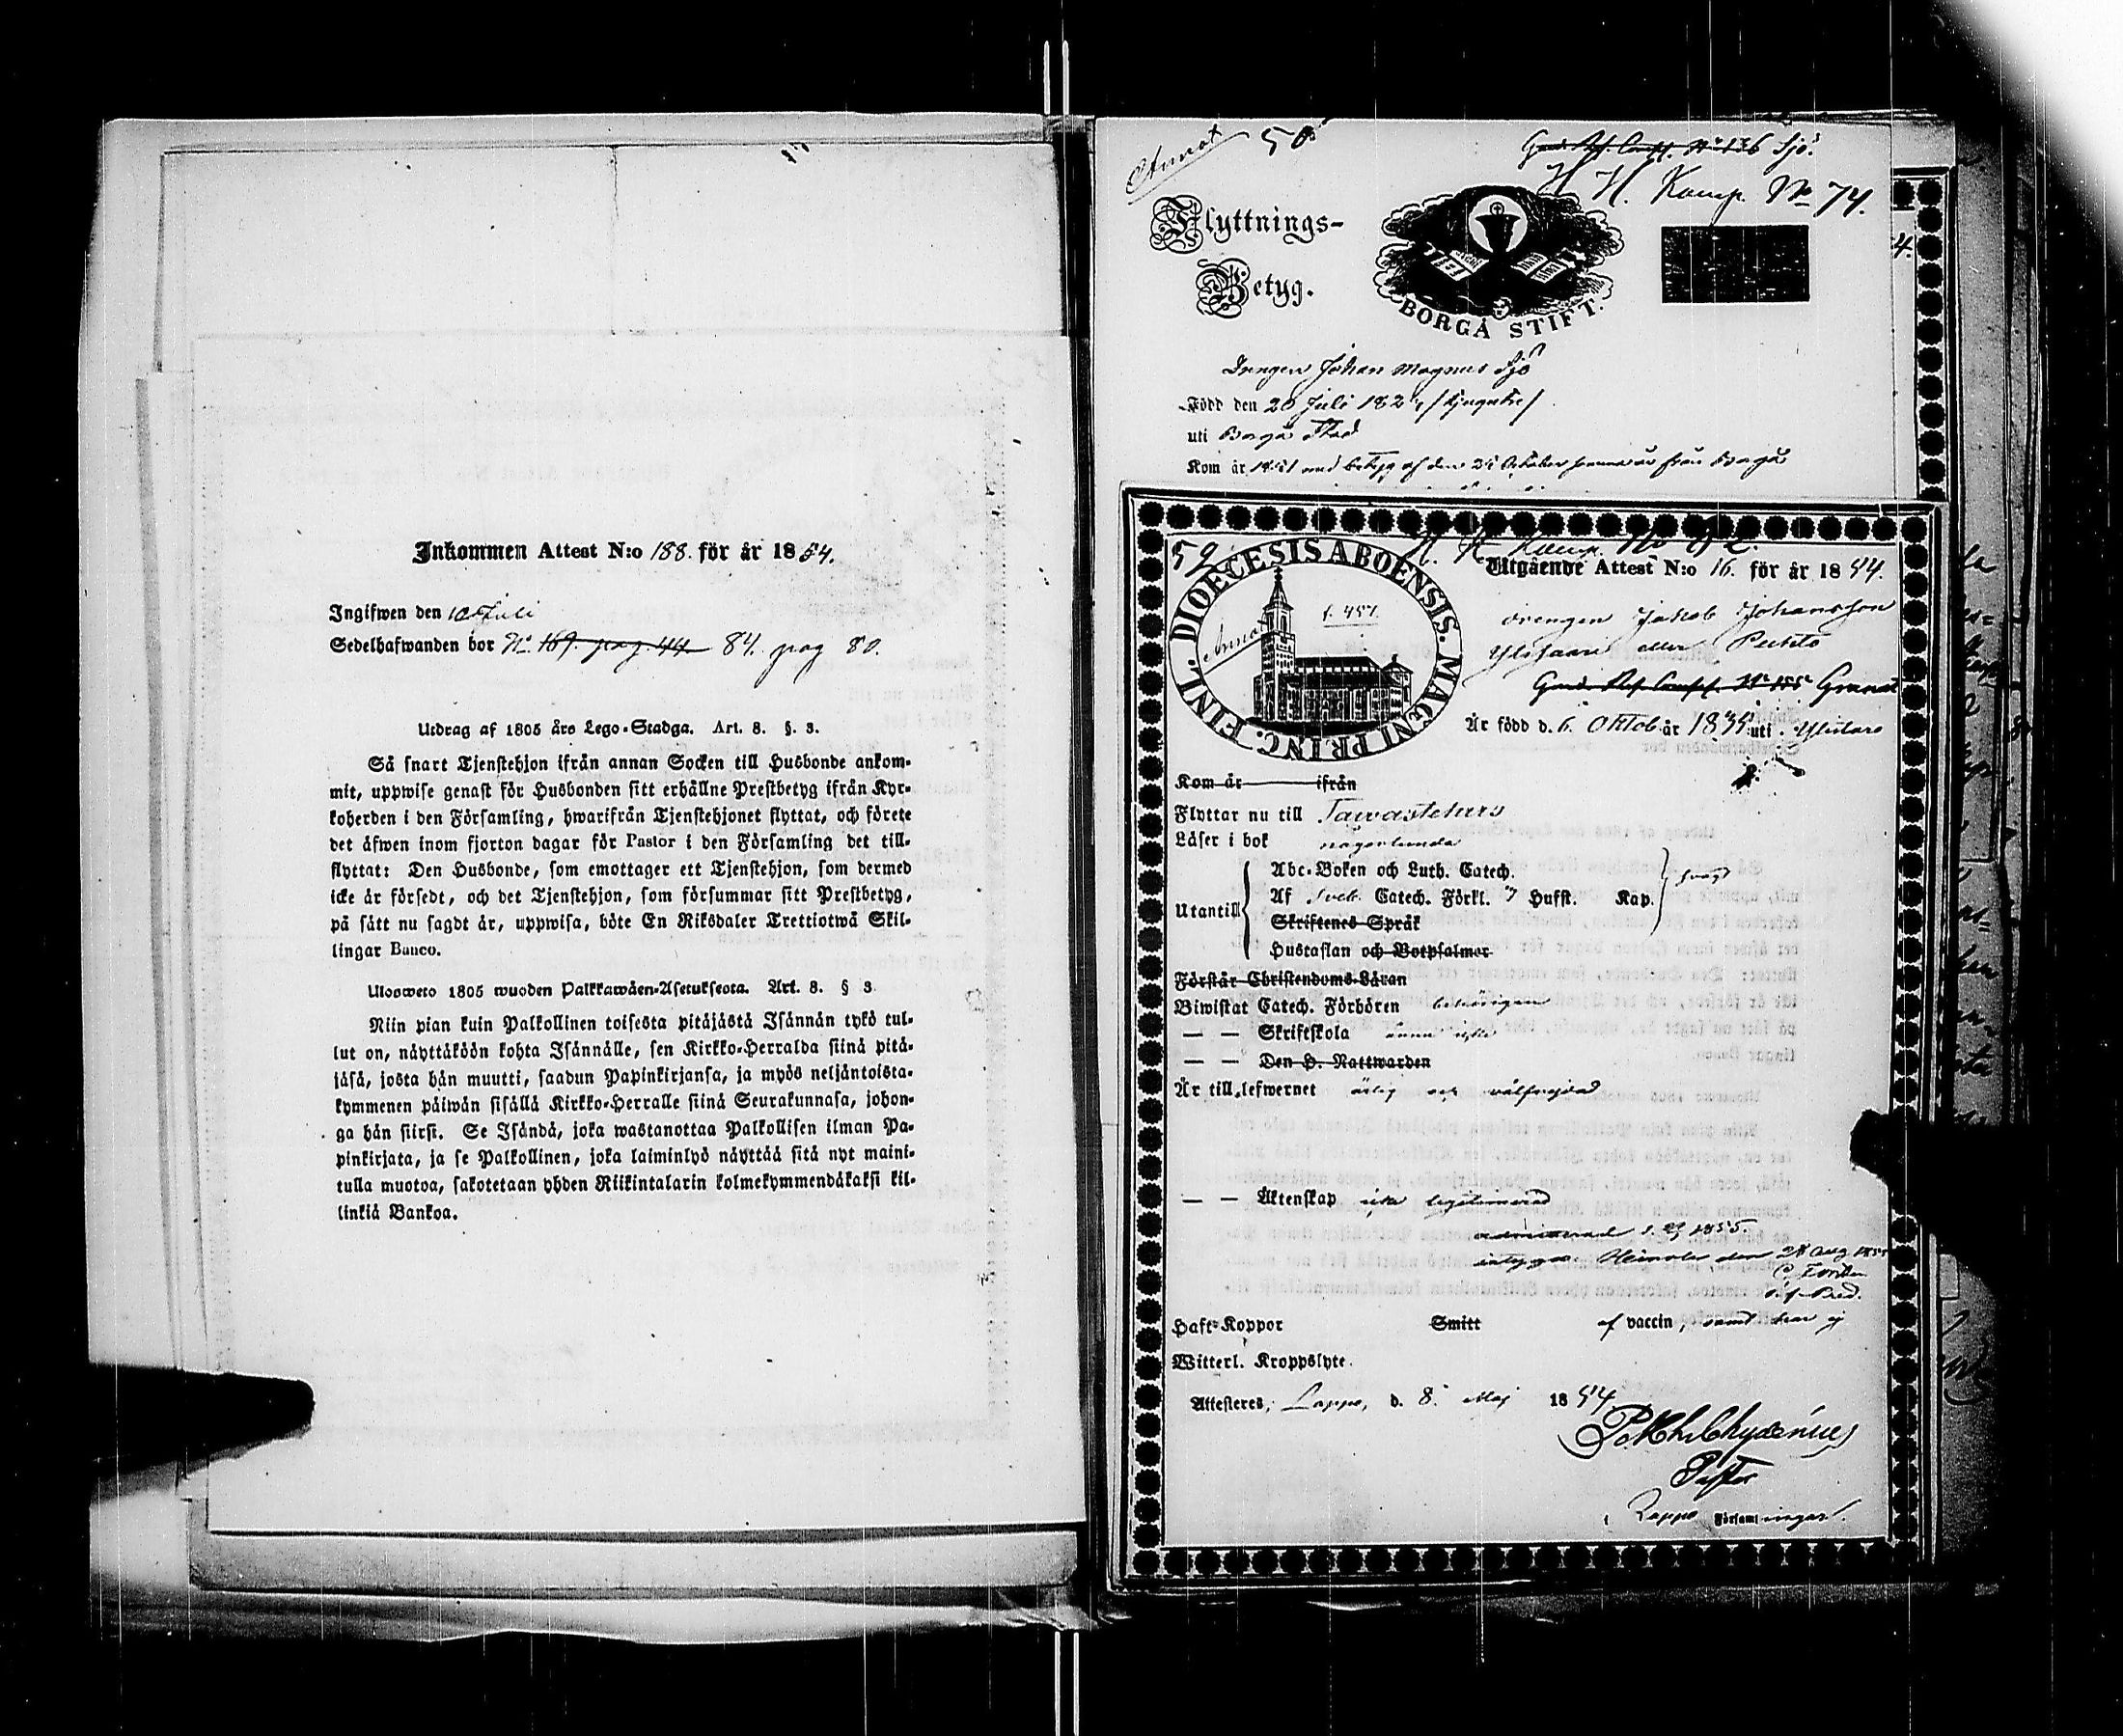 Inkommen Attest N:o 188. för år 1854.
Ingifwen den 10 Juli
Sedelhafwanden bor No 169. pag. 44. 84. pag 80.
Utdrag af 1805 års Lego-Stadga. Art. 8. §. 3.
Så snart Tjenstehjon ifrån annan Socken till Husbonde ankom-
mit, uppwise genast för Husbonden sitt erhållne Prestbetyg ifrån Kyr-
koherden i den Församling, hwarifrån Tjenstehjonet flyttat, och förete
det äfwen inom fjorton dagar för Pastor i den Församling det till-
flyttat: Den Husbonde, som emottager ett Tjenstehjon, som dermed
icke är försedt, och det Tjenstehjon, som försummar sitt Prestbetyg,
på sätt nu sagdt är, uppwisa, böte En Riksdaler Trettiotwå Skil-
lingar Banco.
Ulosweto 1805 wuoden Palkkawäen-Asetuksesta. Art. 8. § 3.
Niin pian kuin Palkollinen toisesta pitäjästä Isännän tykö tul-
lut on, näyttäköön kohta Isännälle, sen Kirkko-Herralda siinä pitä-
jäsä, josta hän muutti, saadun Papinkirjansa, ja myös neljäntoista-
kymmenen päiwän sisällä Kirkko-Herralle siinä Seurakunnasa, johon-
ga hän siirst. Se Isändä, joka wastanottaa Palkollisen ilman Pa-
pinkirjata, ja se Palkollinen, joka laiminlyö näyttää sitä nyt maini-
tulla muotoa, sakotetaan yhden Riikintalarin kolmekymmendäkaksi kil-
linkiä Bankoa.
Annot 50
Gard. Ref. Comp. No 136 Sjö.
H. H. Kamp. No 74.
Flyttnings-
Betyg.
BORGÅ STIFT.
Drengen Johan Magnus Sjö
Född den 20 Juli 182
uti Borgå Stad
Kom år 1851 med betyg af den 25 Oktober samma år från Borgå
59
H. H. Kamp. No 92.
DIOECESIS ABOENSIS. MAGNI PRINC. FINL.
f. 457.
Annot
Utgående Attest N:o 16. för år 1854.
drengen Jakob Johansson
Ylisaari eller Puhto
Gard. Ref. Comp. No 155 Granat
Är född d. 6. Oktob år 1835 uti Ylistaro
Kom år ifrån
Flyttar nu till Tawastehus
Läser i bok någorlunda
Abc-Boken och Luth. Catech.
Utantill Af Sveb. Catech. Förkl. 7 Hufst. Kap. swagt
Skriftenes Språk
Hustaflan och Botpsalmer
Förstår Christendoms-Läran
Biwistat Catech. Förhören behörigen
— — Skriftskola ännu icke
— — Den H. Nattwarden
Är till lefwernet ärlig och wälfrejdad
— — Äktenskap icke legitimerad
admitterad d. 1855.
intygar Heinola den 28 Aug 1855
C. Forsten
Haft Koppor Smitt af vaccin, samt har ej
Witterl. Kroppslyte.
Attesteres, Lappo, d. 8. Maj 1854.
Chydenius
Pastor
Lappo Församlingar.